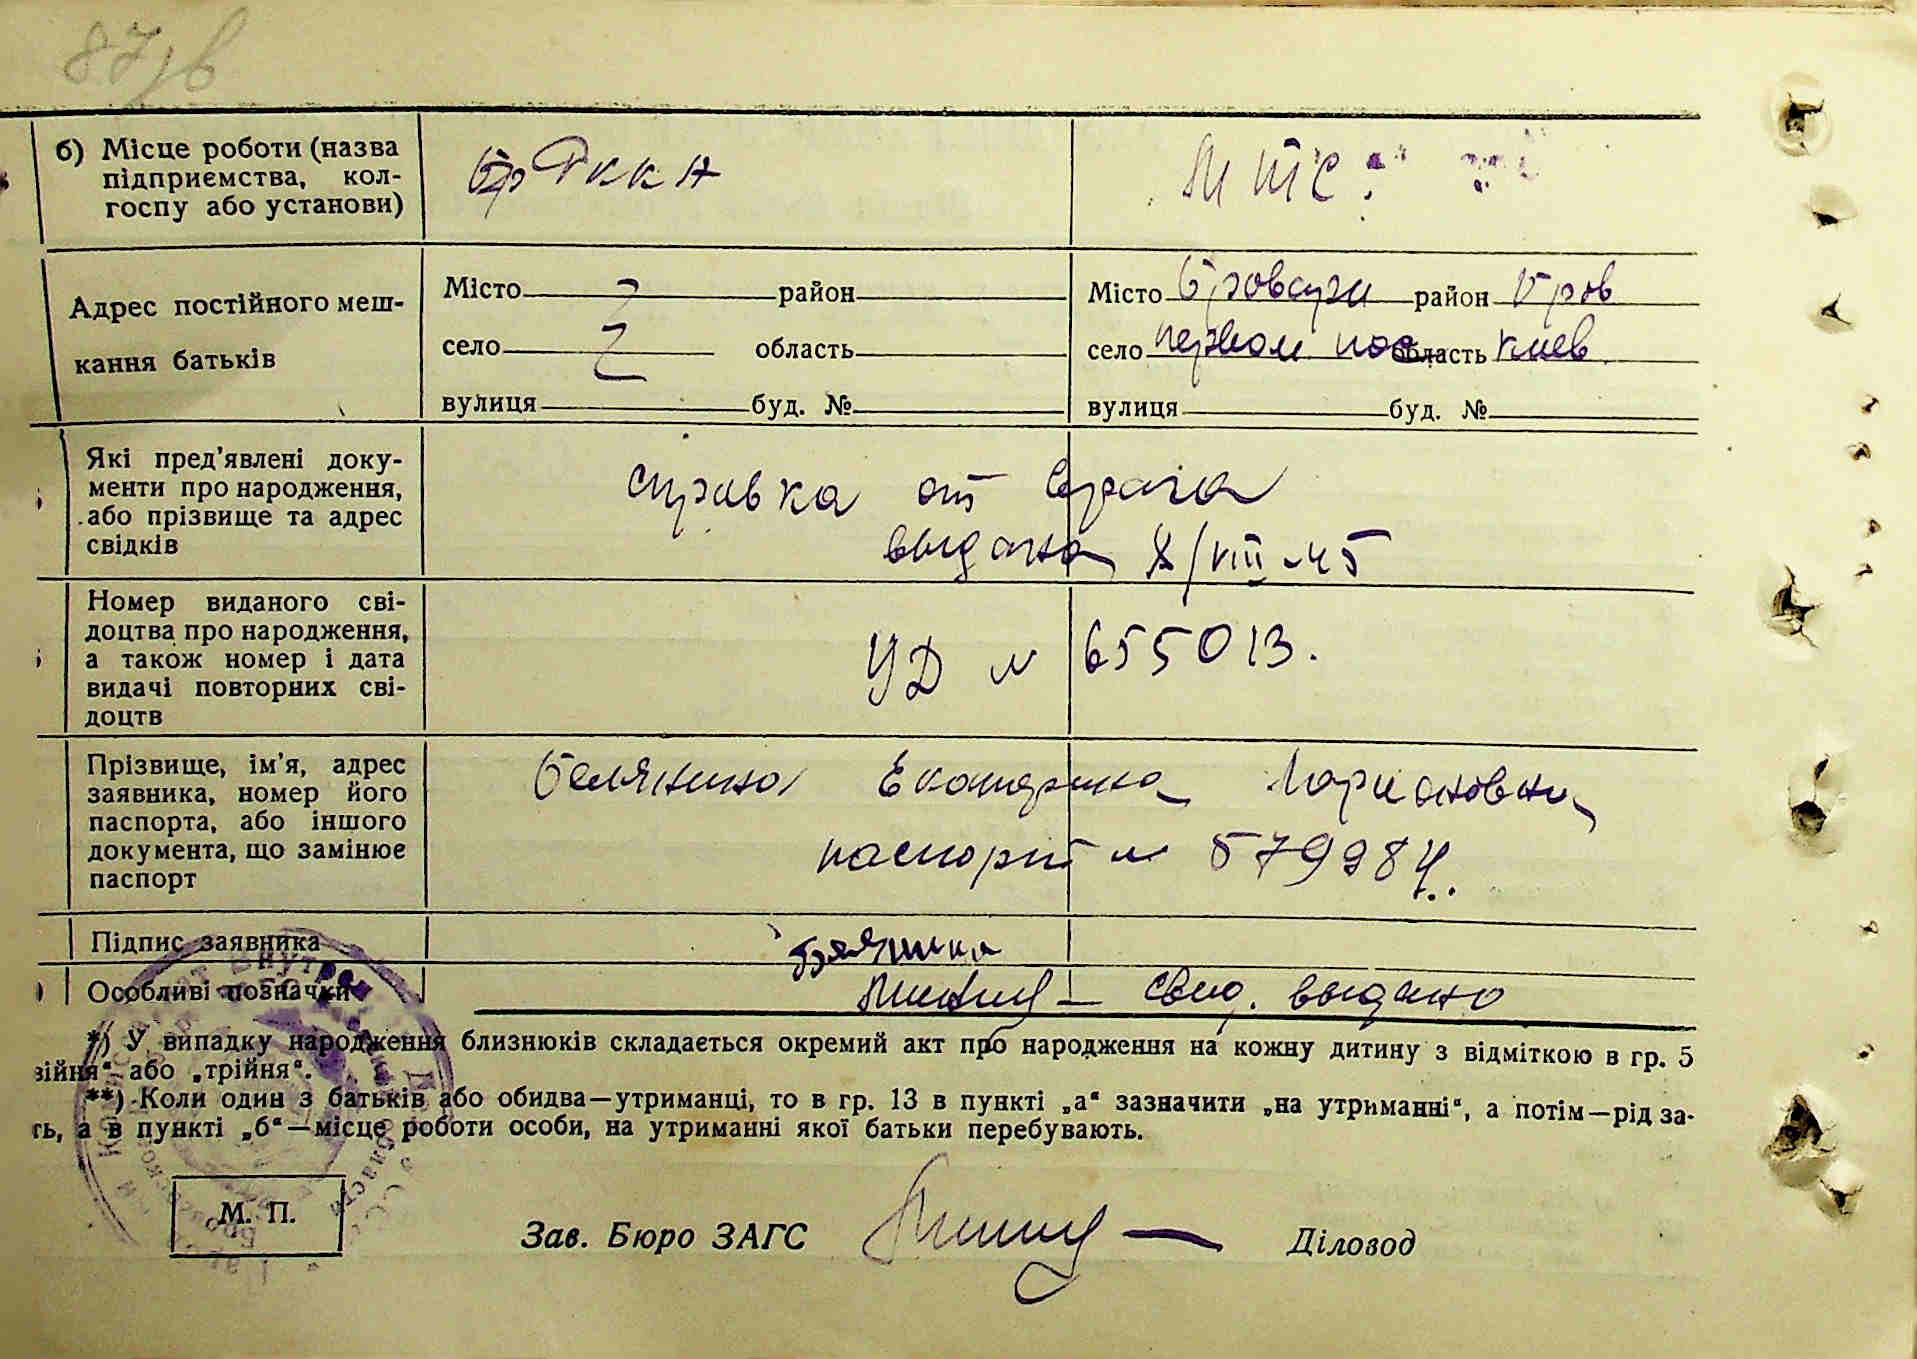 б) Місце роботи (назва
підприємства, кол-
госпу або установи)
РККА
МТС
Адрес постійного меш-
кання батьків
Місто район
село область
вулиця буд. №
Місто Бровари район Бров
село первом пос область Киев
вулиця буд. №
Які пред'явлені доку-
менти про народження,
або прізвище та адрес
свідків
справка от врача
выдана 8/VIII-45
Номер виданого сві-
доцтва про народження,
а також номер і дата
видачі повторних сві-
доцтв
УД № 655013.
Прізвище, ім'я, адрес
заявника, номер його
паспорта, або іншого
документа, що замінює
паспорт
Белянина Екатерина Ларионовна
паспорт № 579984.
Підпис заявника
Особливі позначки
свид. выдано
*) У випадку народження близнюків складається окремий акт про народження на кожну дитину з відміткою в гр. 5
війня" або „трійня".
**) Коли один з батьків або обидва—утриманці, то в гр. 13 в пункті „а" зазначити „на утриманні", а потім—рід за-
ть, а в пункті „б"—місце роботи особи, на утриманні якої батьки перебувають.
М. П.
Зав. Бюро ЗАГС Діловод